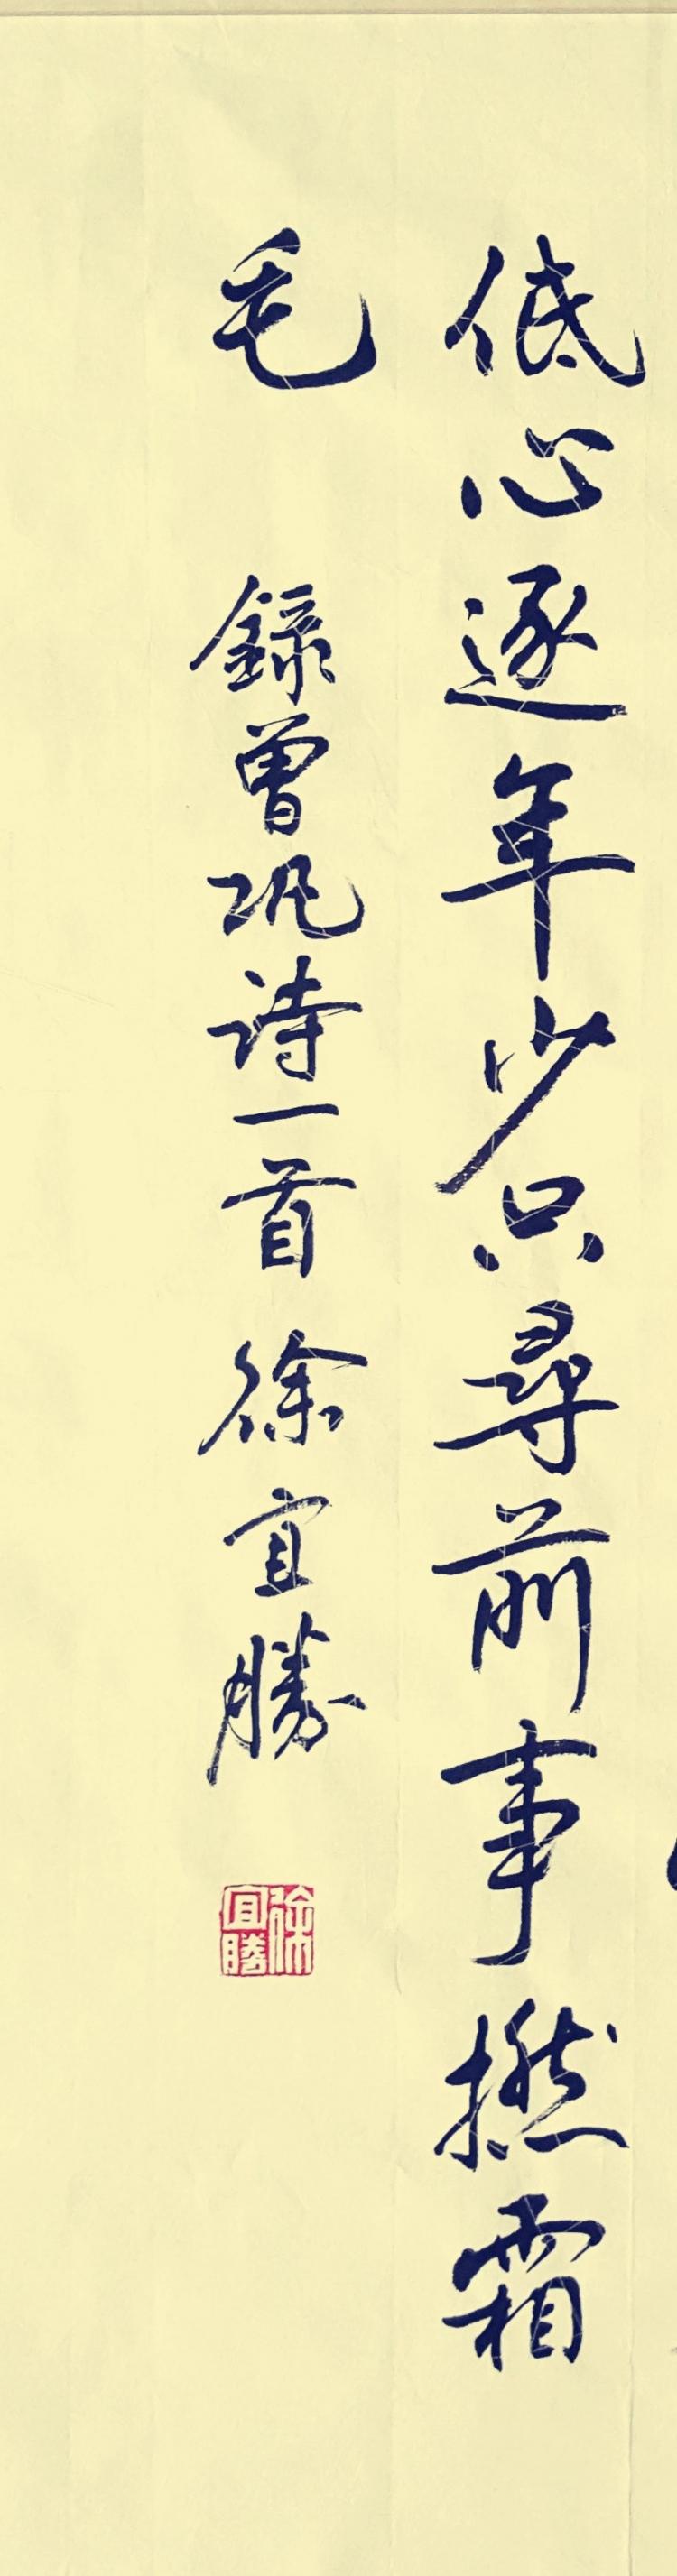 低心逐年少只尋前事撚霜
毛
錄曾巩詩一首 徐宜勝
徐宜勝